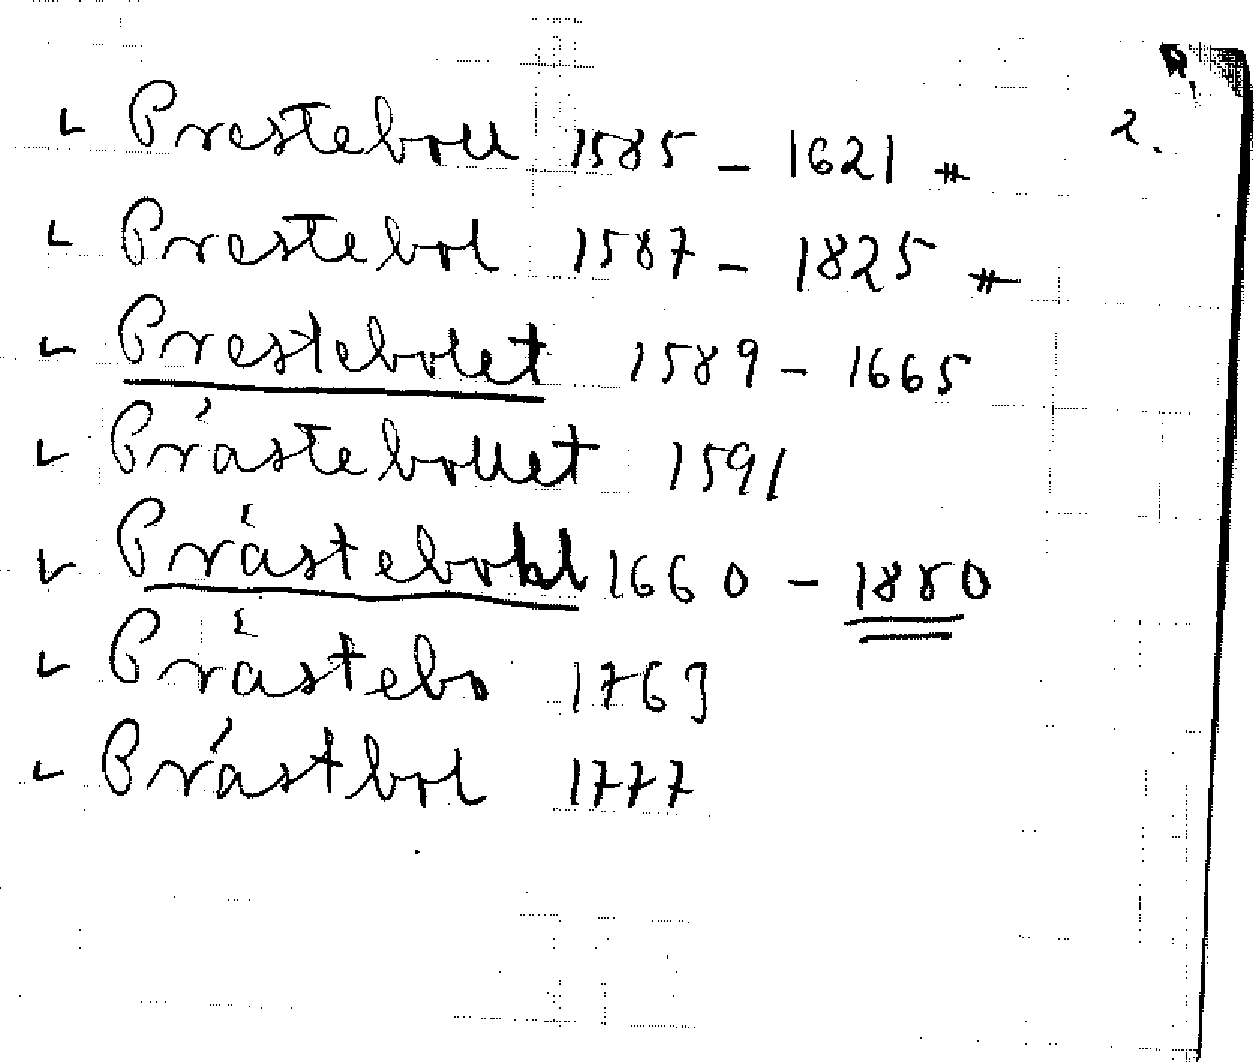 2.
Presteboll 1585 - 1621 #
Prestebol 1587 - 1825 #
Prestebolet 1589 - 1665
Prästebollet 1591
Prästebohl 1660 - 1880
Prästebo 1763
Prästbol 1777